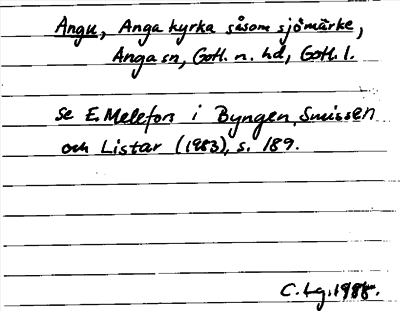 Angu, Anga kyrka såsom sjömärke,
Anga sn, Gotl. n. hd, Gotl. l.
Se E. Melefors i Byngen, Smissen
och Listar (1983), s. 189.
C. Lg. 1985.